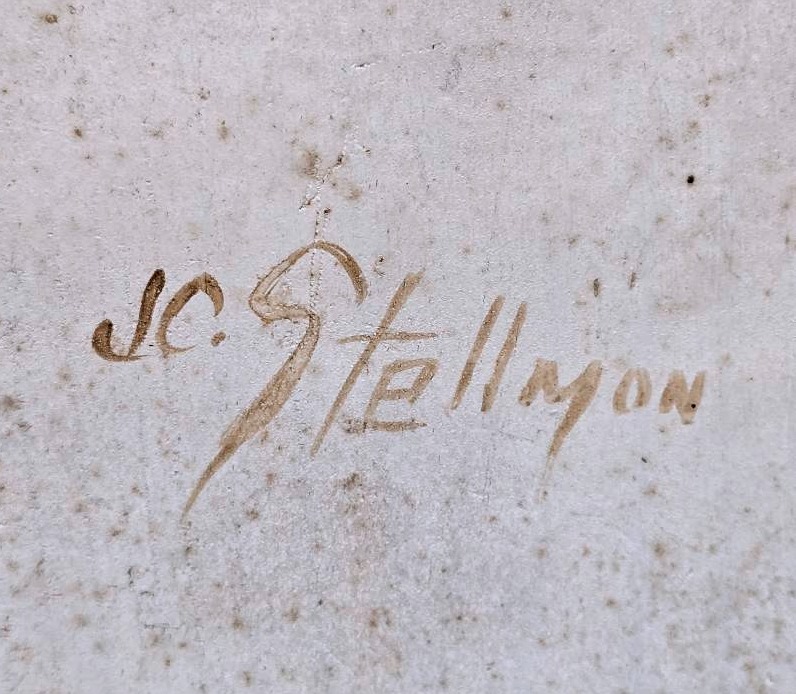 JC. Stellmon